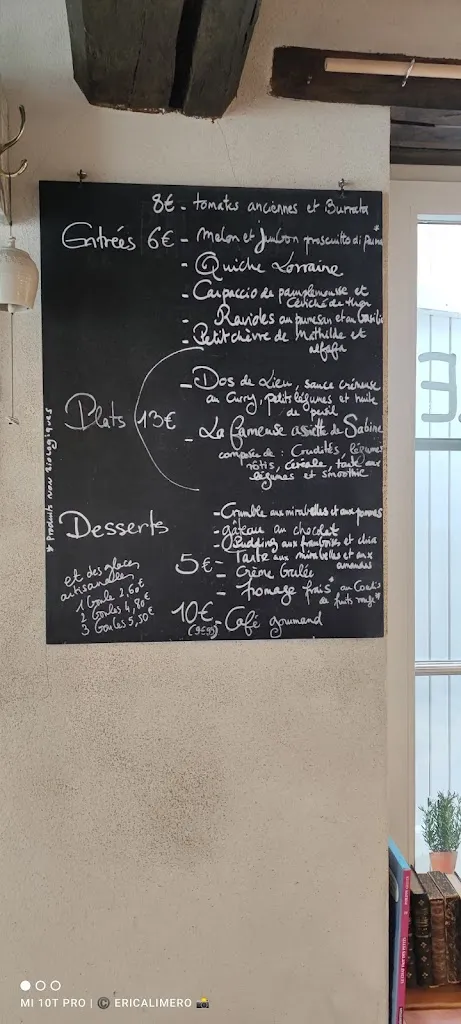 8€ - tomates anciennes et Burrata
Entrées 6€ - Melon et Jambon proscuitto di Parma*
- Quiche Lorraine
- Carpaccio de pamplemousse et
Céviche de thon
- Ravioles au parmesan et au basilic
- Petit chèvre de Mathilde et
alfafa
Plats 13€
- Dos de Lieu, sauce crémeuse
au Curry, petits légumes et huile
de persil
- La fameuse assiette de Sabine
composée de : Crudités, légumes
rôtis, céréale, tarte aux
légumes et smoothie
* Produits Non Biologiques
Desserts
- Crumble aux mirabelles et aux pommes
- gâteau au chocolat
- Pudding aux framboises et chia
5€ - Tarte aux mirabelles et aux
amandes
- Crème brulée
- fromage frais* au Coulis
de fruits rouge*
10€ - Café gourmand
(9€90)
et des glaces
artisanales
1 boule 2,60€
2 boules 4,80€
3 boules 5,50€
MI 10T PRO | © ERICALIMERO